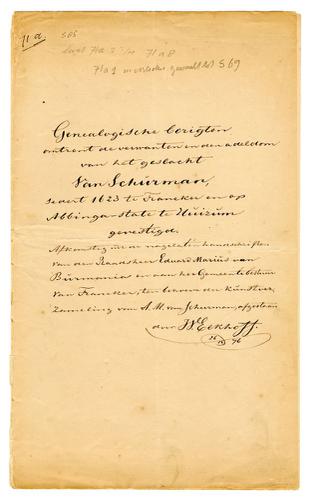 71 a.
S 85
71 a 8
71 a 1
S 69
Genealogische berigten
omtrent de verwanten en den adeldom
van het geslacht
Van Schurman,
sedert 1623 te Franeker en op
Abbinga-state te Huizum
gevestigd.
Afkomstig uit de nagelaten handschriften
van den Raadsheer Eduard Marius van
Burmania en aan het Gemeentebestuur
van Franeker, ten behoeve der kunstver-
zameling van A. M. van Schurman, afgestaan
door W. Eekhoff.
76